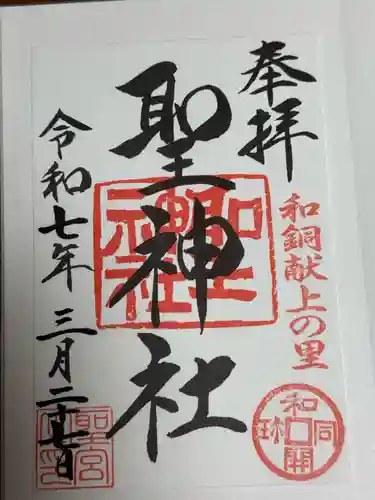 奉拝
和銅献上の里
和同開珎
聖神社
令和七年三月二十七日
聖宮